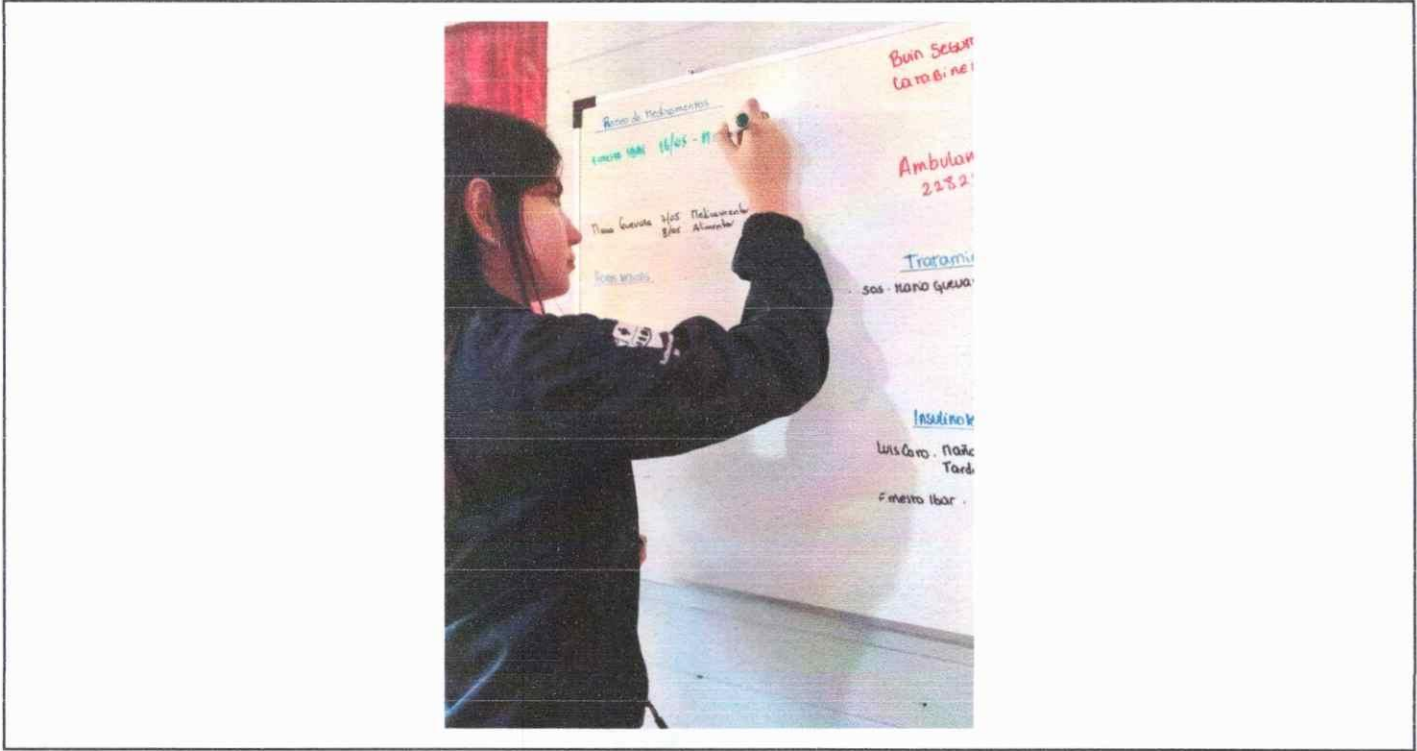 de Medicamentos
16/05 -
Guevara 7/05 Medicamentos
8/05 Alimentos
Buin Segur
Carabiner
Ambulan
2282
Tratami
SOS - Maria Gueva
Insulinot
Luis Caro . Maña
Tard
Ernesto Ibar .